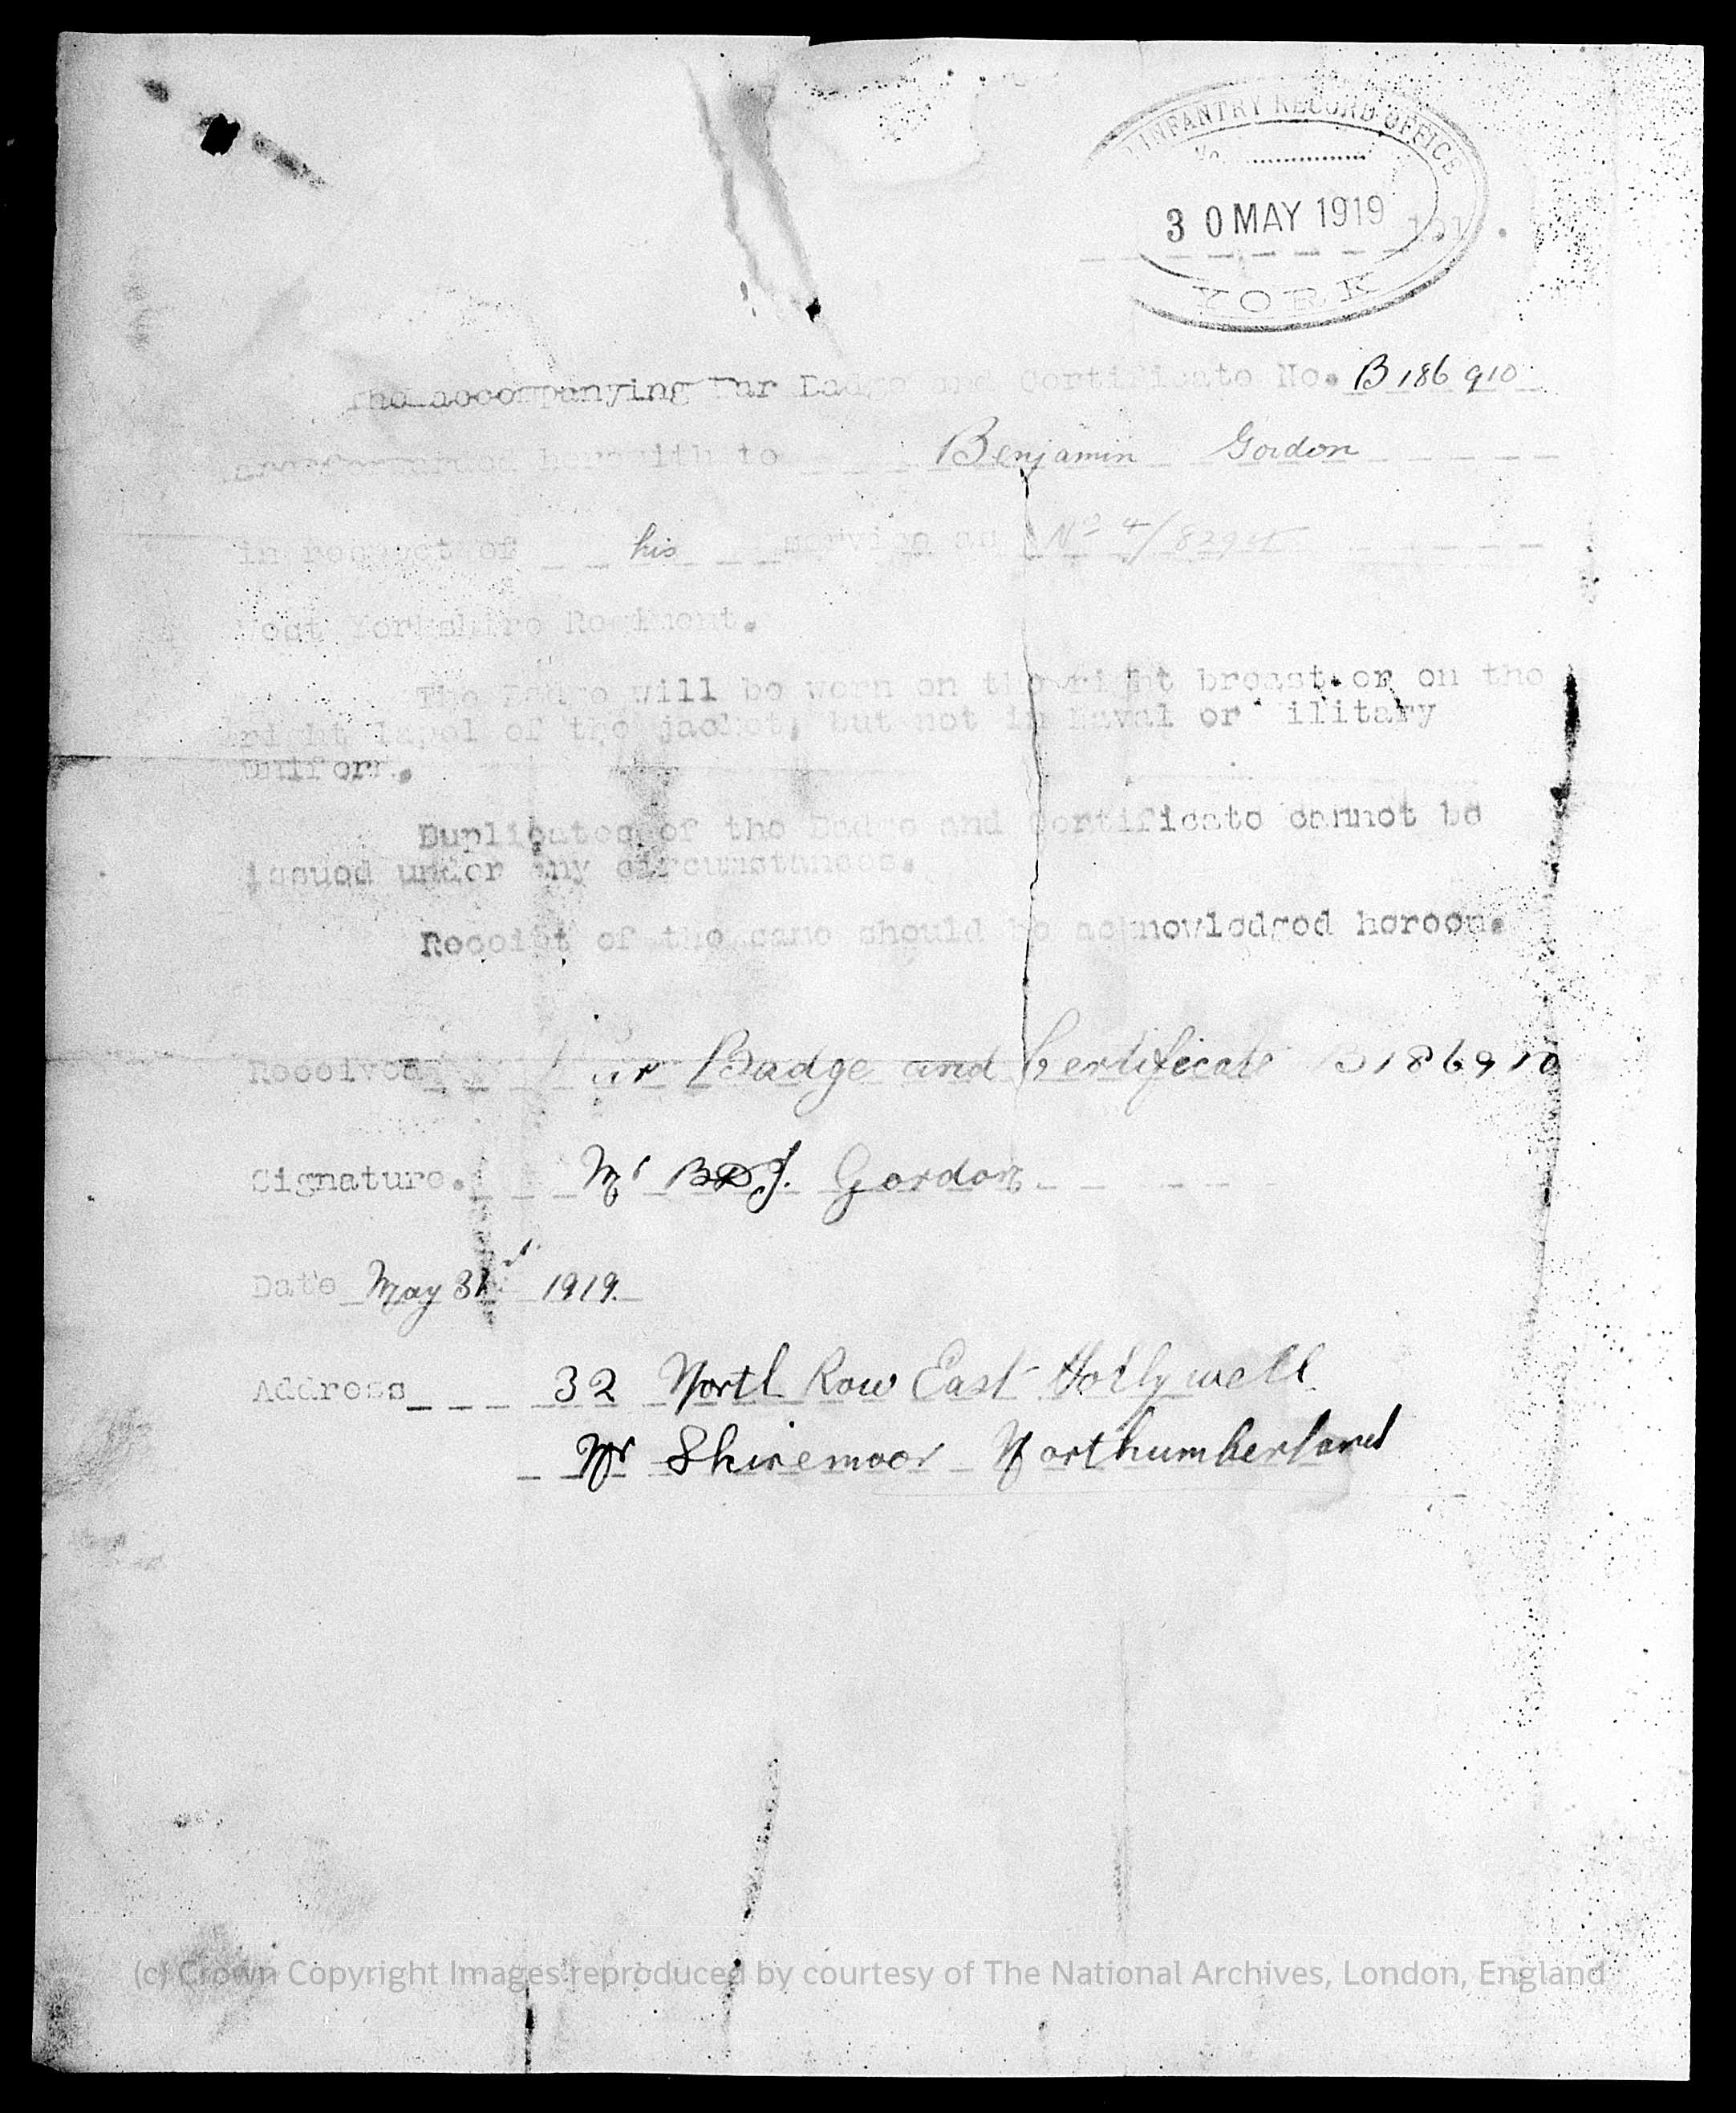 INFANTRY RECORD OFFICE
No.
30 MAY 1919
191 .
YORK
The accompanying War Badge and Certificate No. B186910
herewith to Benjamin Gordon
in respect of his service as No 4/
West Yorkshire Regiment.
The Badge will be worn on the right breast or on the
right lapel of the jacket, but not in Naval or Military
uniform.
Duplicates of the Badge and Certificate cannot be
issued under any circumstances.
Receipt of the same should be acknowledged hereon.
Received War Badge and Certificate B186910
Signature. Mr B D J. Gordon
Date May 31st 1919.
Address 32 North Row East Hollywell
Nr Shiremoor Northumberland
(c) Crown Copyright Images reproduced by courtesy of The National Archives, London, England